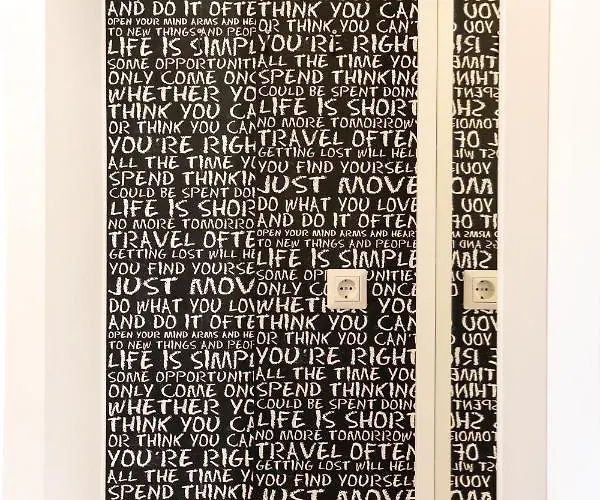 AND DO IT OFTE
OPEN YOUR MIND ARMS AND HE
TO NEW THINGS AND PEOP
LIFE IS SIMPL
SOME OPPORTUNITI
ONLY COME ON
WHETHER YO
THINK YOU CA
OR THINK YOU CA
YOU'RE RIGH
ALL THE TIME YO
SPEND THINKI
COULD BE SPENT DOI
LIFE IS SHOR
NO MORE TOMORRO
TRAVEL OFTE
GETTING LOST WILL HE
YOU FIND YOURSE
JUST MOV
DO WHAT YOU LO
AND DO IT OFTE
OPEN YOUR MIND ARMS AND HE
TO NEW THINGS AND PEOP
LIFE IS SIMPL
SOME OPPORTUNITI
ONLY COME ON
WHETHER YO
THINK YOU CA
OR THINK YOU CA
YOU'RE RIGH
ALL THE TIME Y
SPEND THINKI
THINK YOU CAN
OR THINK YOU CAN'
YOU'RE RIGHT
ALL THE TIME YOU
SPEND THINKING
COULD BE SPENT DOING
LIFE IS SHORT
NO MORE TOMORROW
TRAVEL OFTEN
GETTING LOST WILL HEL
YOU FIND YOURSELF
JUST MOVE
DO WHAT YOU LOVE
AND DO IT OFTEN
OPEN YOUR MIND ARMS AND HEART
TO NEW THINGS AND PEOPLE
LIFE IS SIMPLE
SOME OP UNITIES
ONLY C ONCE
THINK YOU CAN
OR THINK YOU CAN'
YOU'RE RIGHT
ALL THE TIME YOU
SPEND THINKING
COULD BE SPENT DOING
LIFE IS SHORT
NO MORE TOMORROW
TRAVEL OFTEN
GETTING LOST WILL HEL
YOU FIND YOURSELF
JUST MOVE